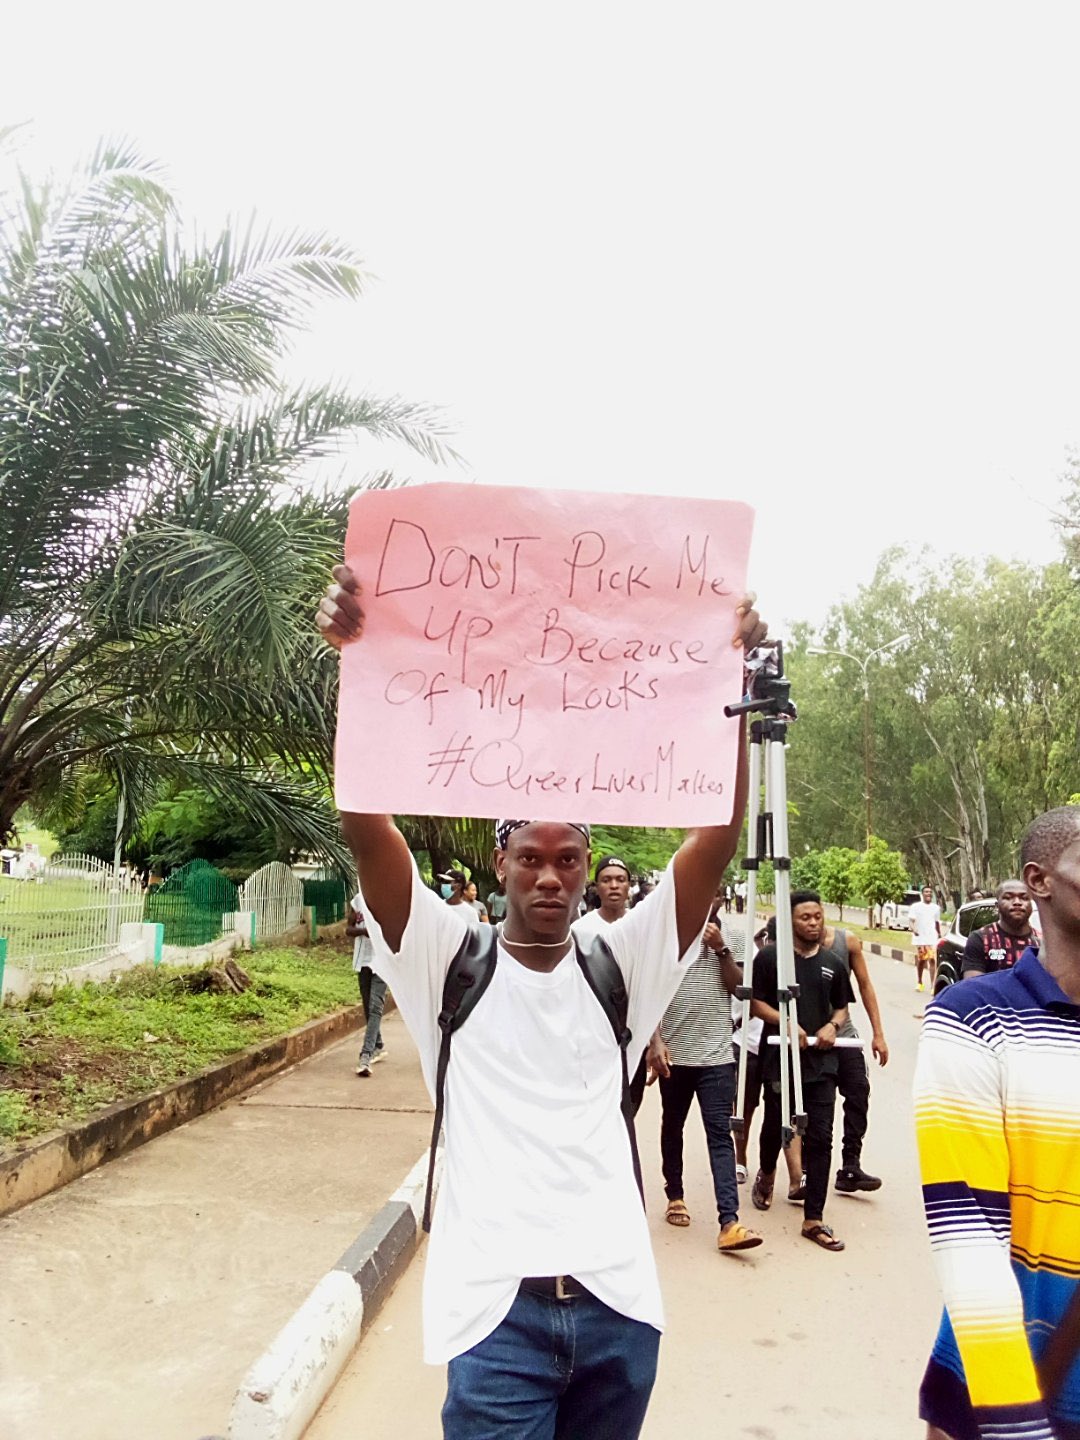 DON'T PICK Me
Up Because
Of My Looks
#QueerLivesMatter